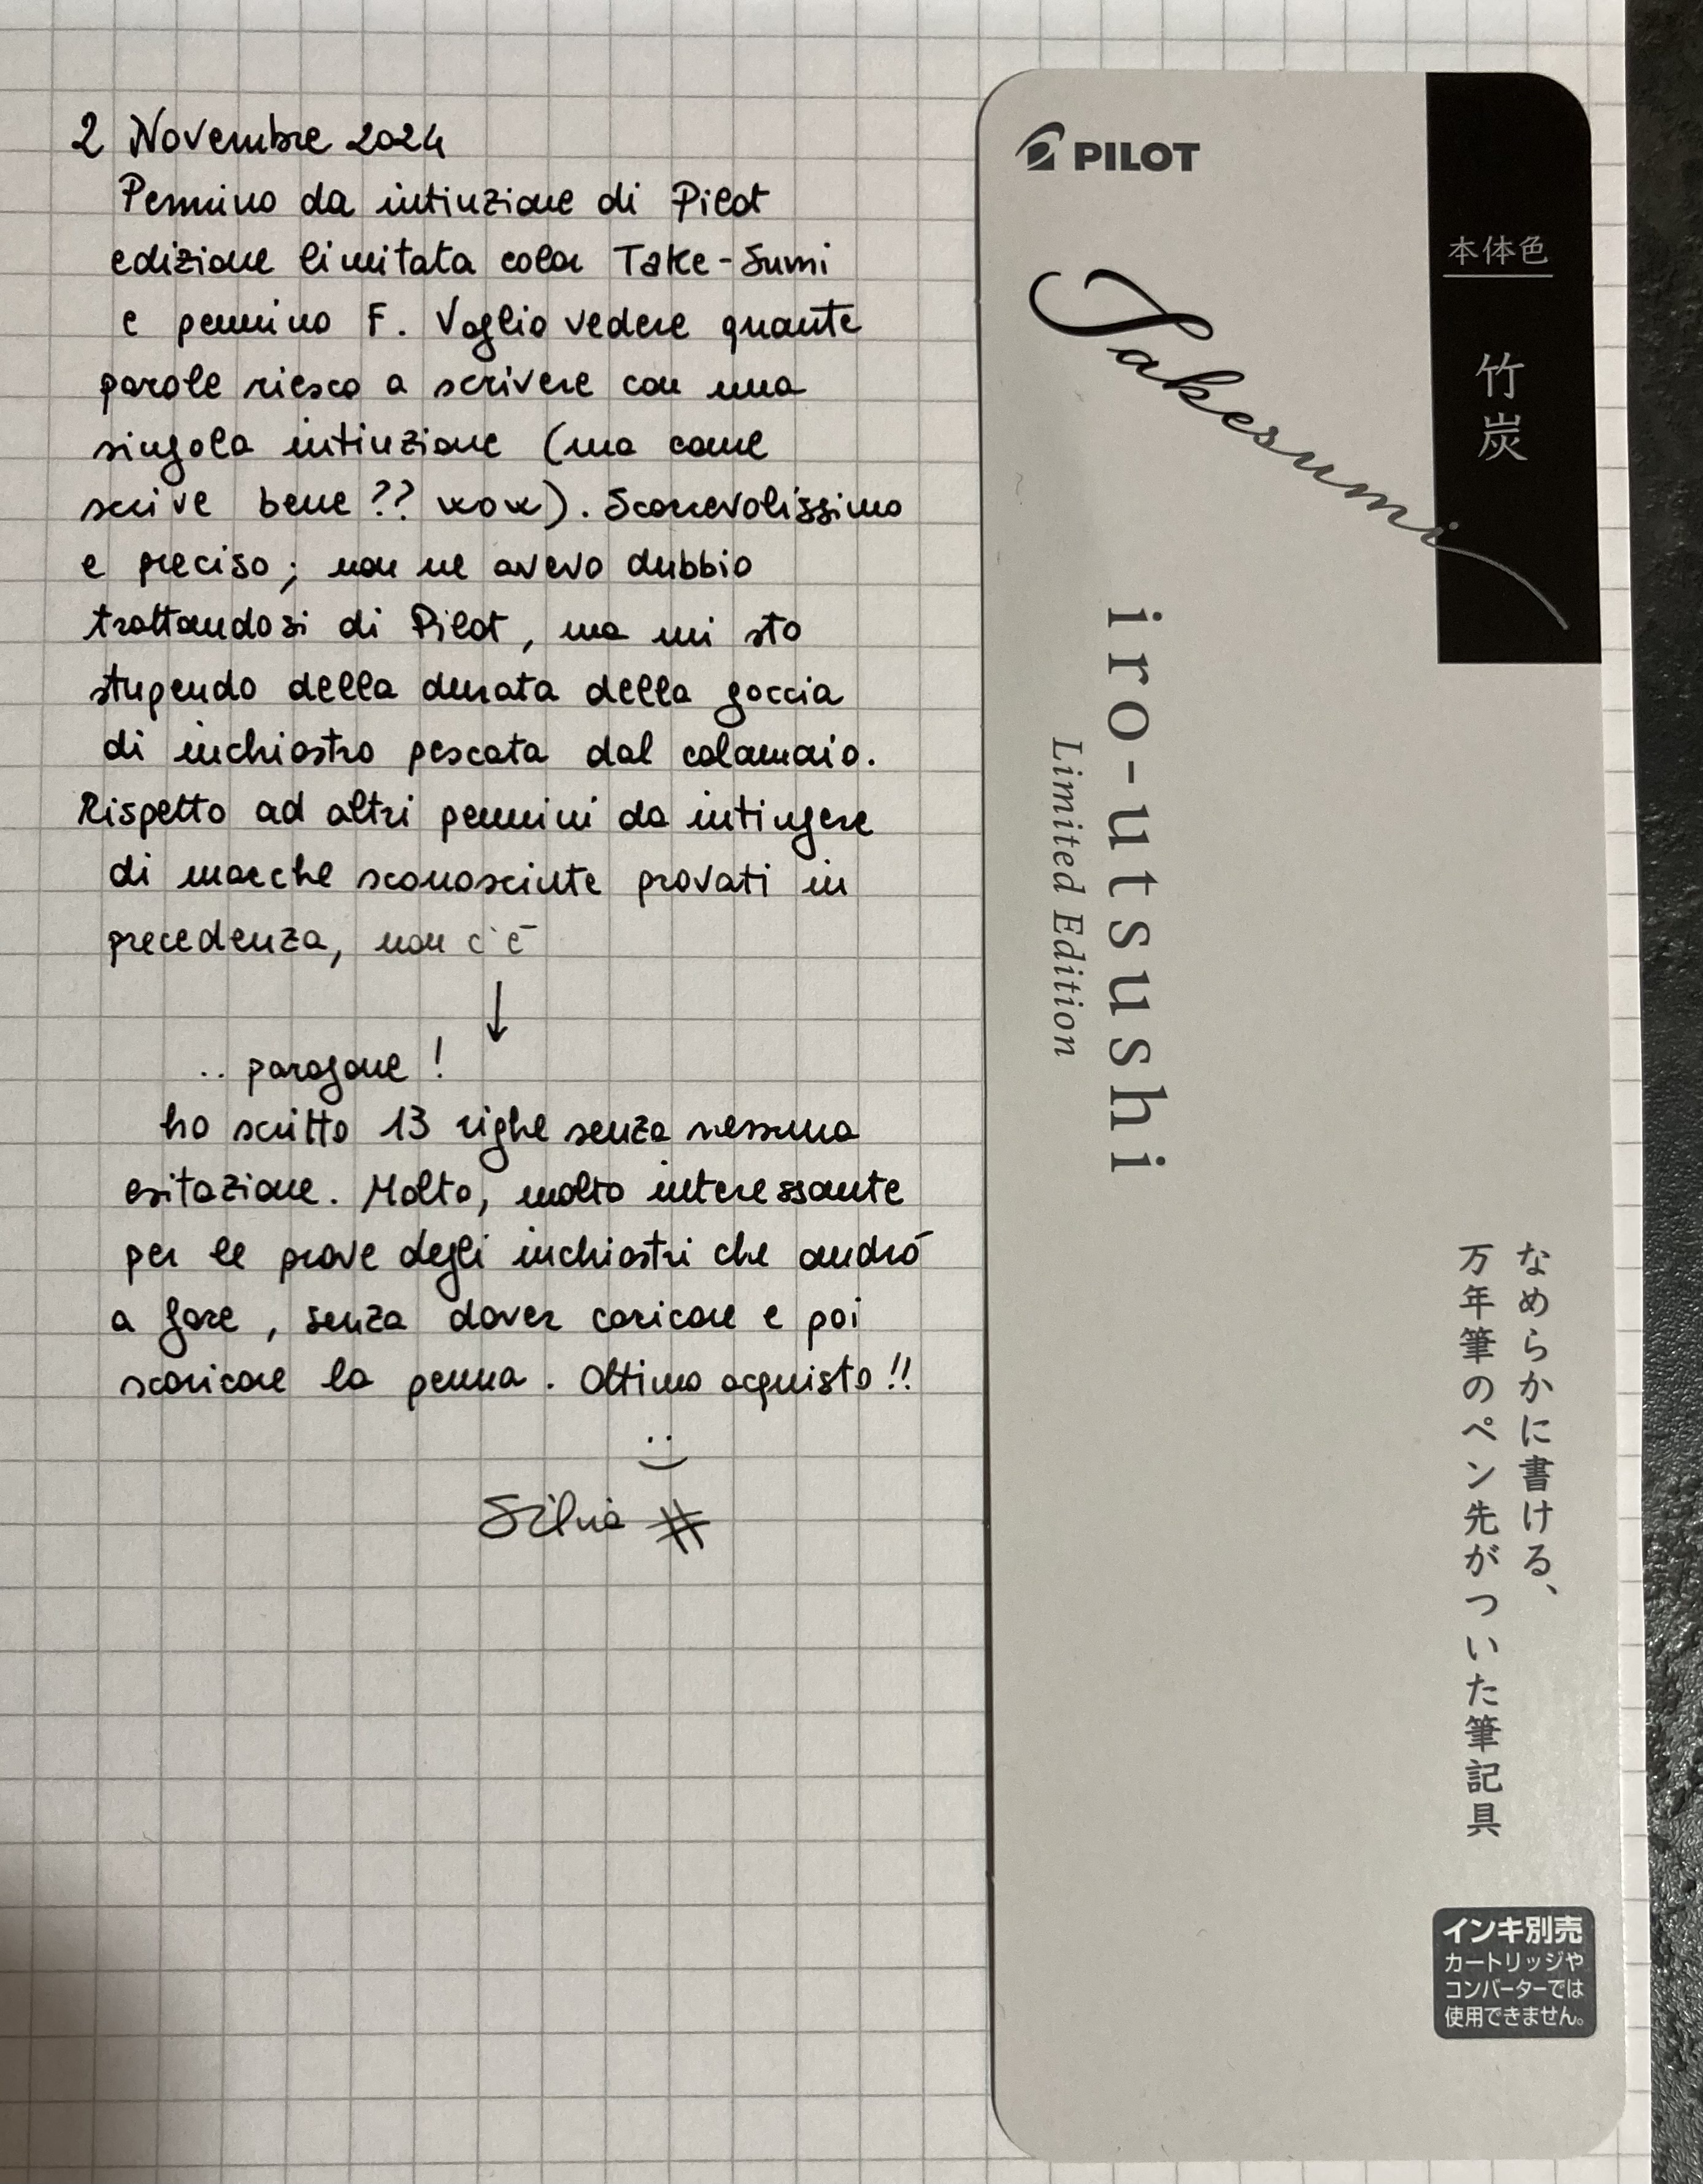 2 Novembre 2024
Pennino da intinzione di Pilot
edizione limitata color Take-Sumi
e pennino F. Voglio vedere quante
parole riesco a scrivere con una
singola intinzione (ma come
scrive bene?? wow). Scorrevolissimo
e preciso; non ne avevo dubbio
trattandosi di Pilot, ma mi sto
stupendo della durata della goccia
di inchiostro pescata dal calamaio.
Rispetto ad altri pennini da intingere
di marche sconosciute provati in
precedenza, non c'è
↓
.. paragone!
ho scritto 13 righe senza nessuna
esitazione. Molto, molto interessante
per le prove degli inchiostri che andrò
a fare, senza dover caricare e poi
scaricare la penna. Ottimo acquisto!!
Silvia #
PILOT
本体色
竹炭
Takesumi
iro-utsushi
Limited Edition
なめらかに書ける、
万年筆のペン先がついた筆記具
インキ別売
カートリッジや
コンバーターでは
使用できません。